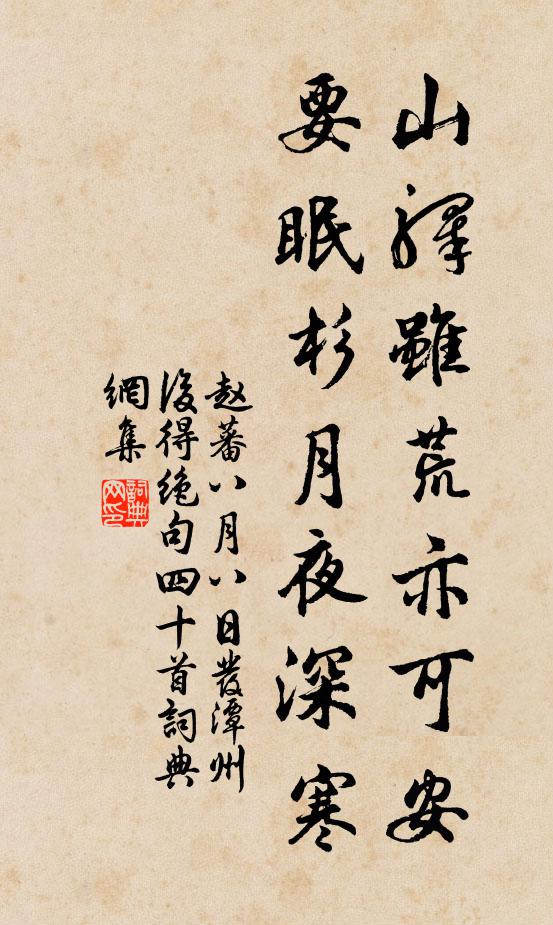 山驛雖荒亦可安
要眠杉月夜深寒
赵蕃八月八日發潭州
後得絶句四十首詞典
網集
詞典
网印